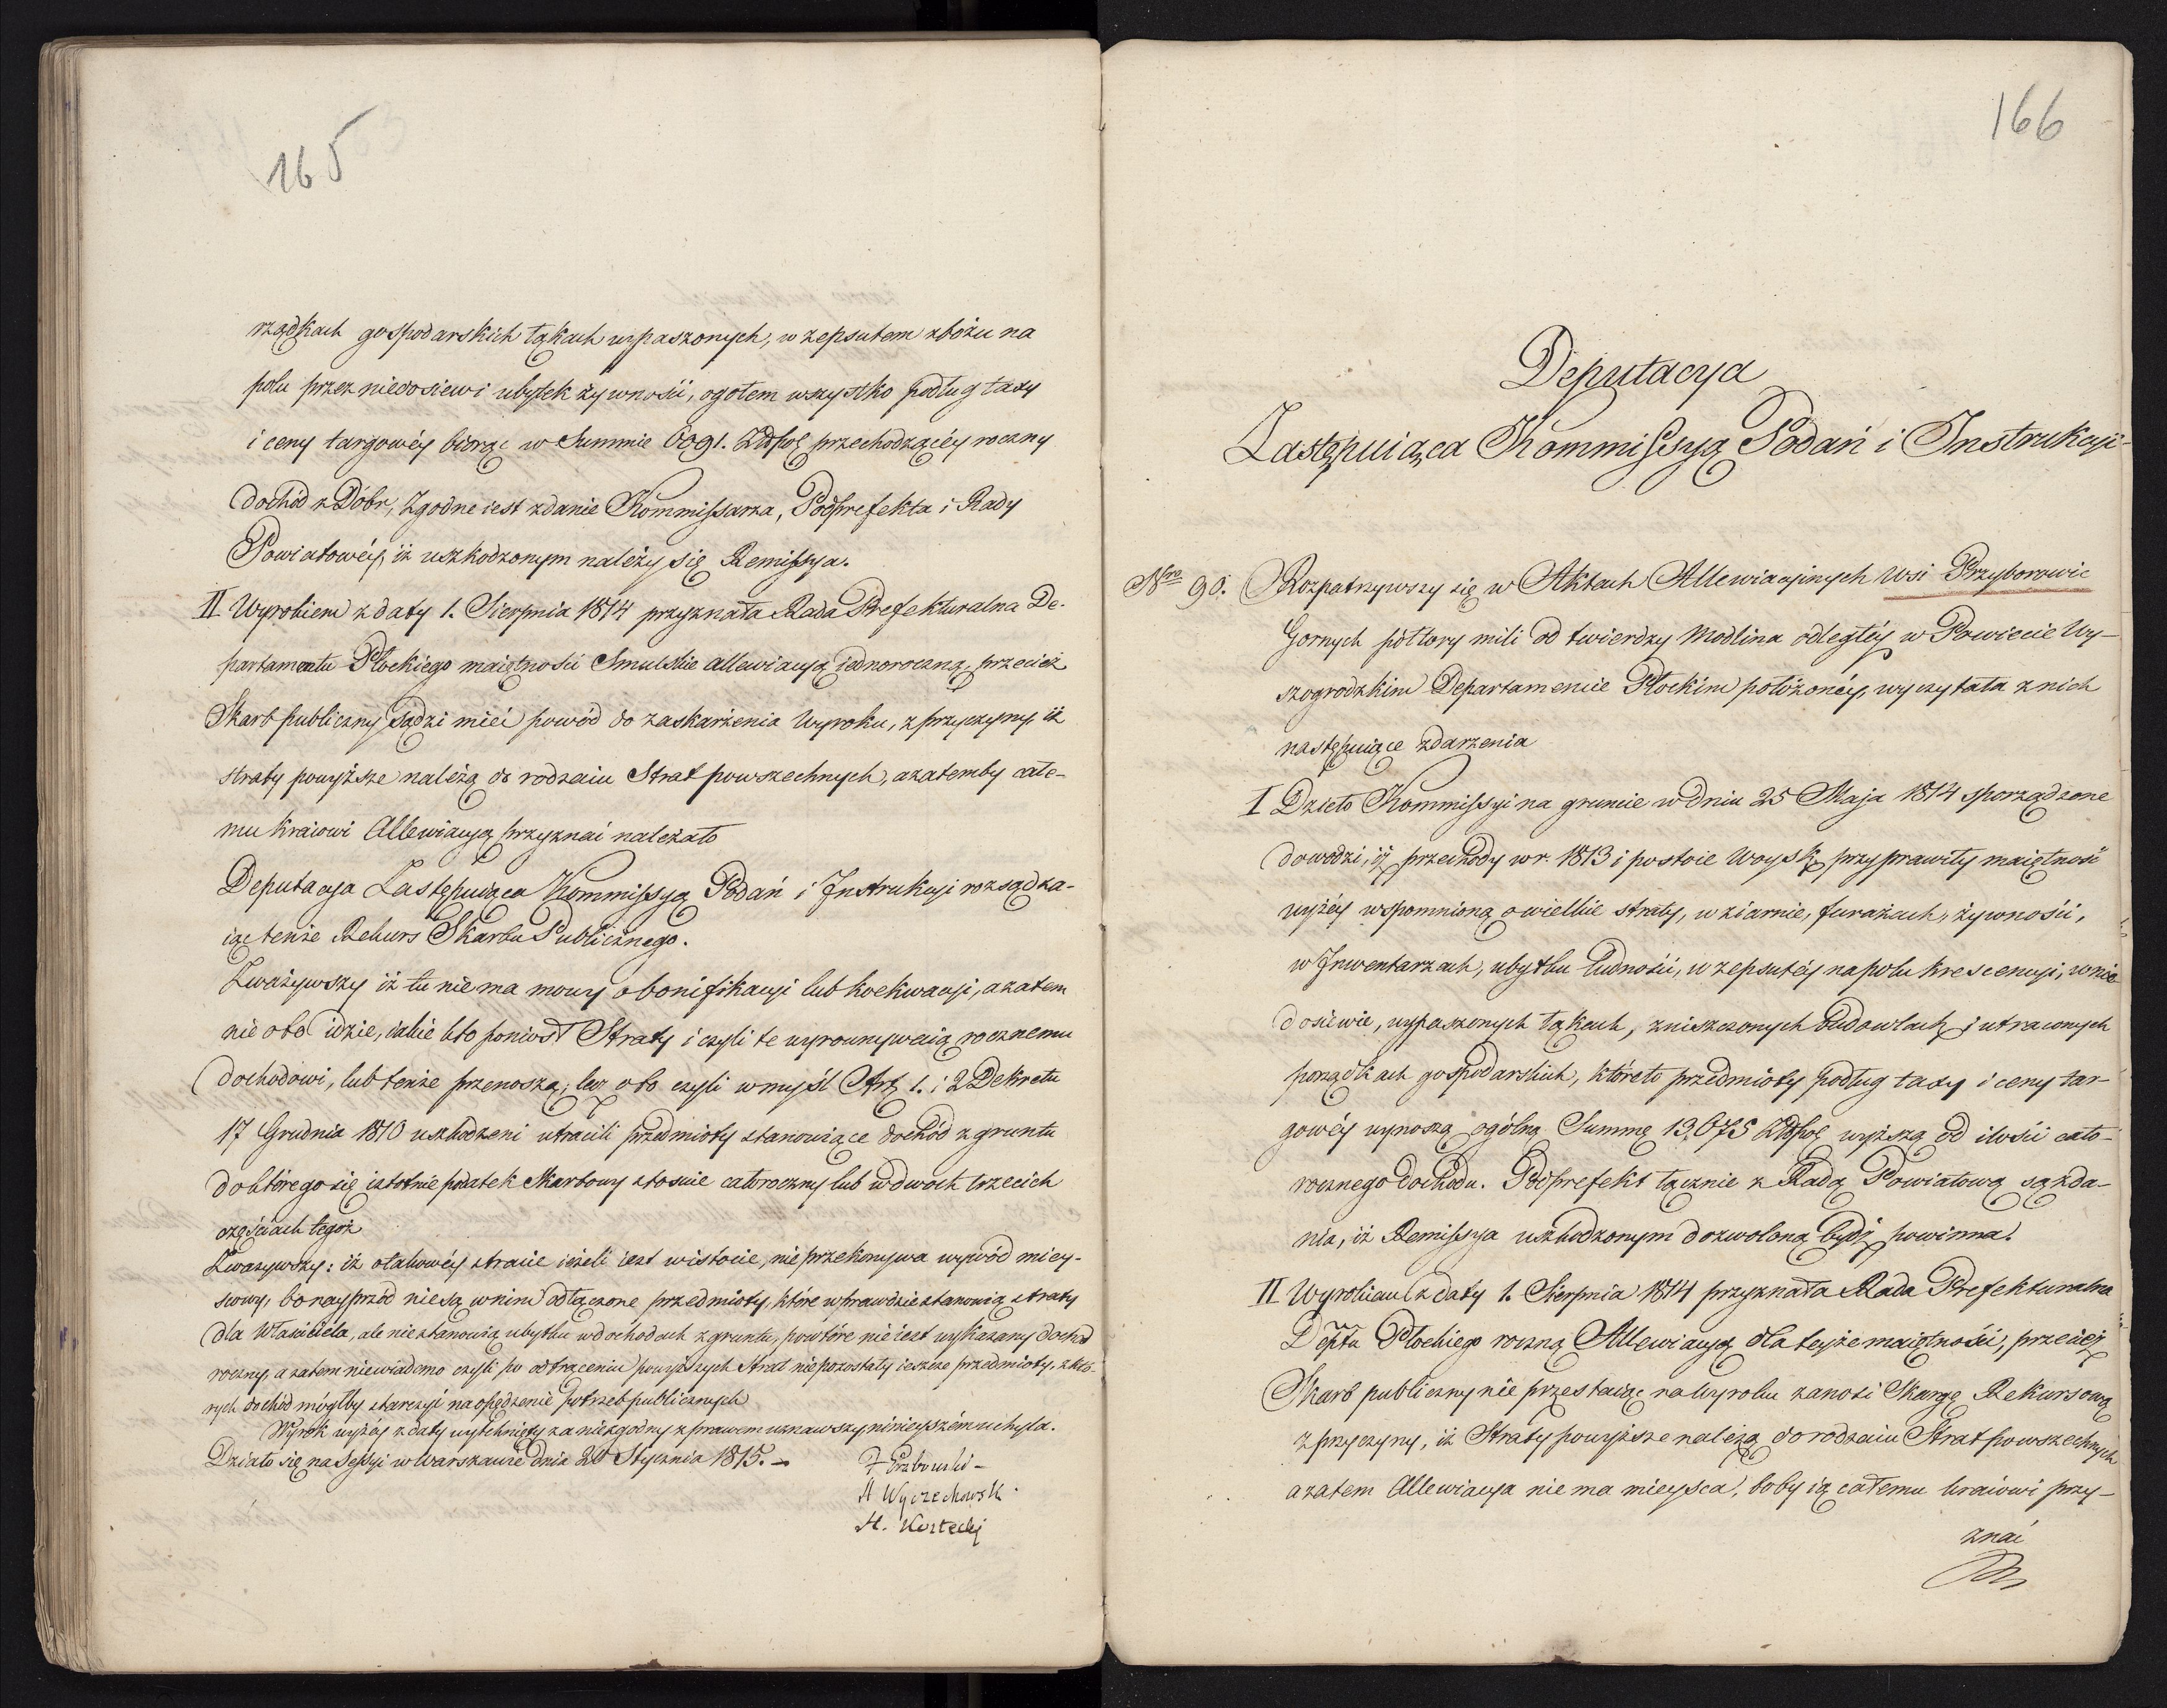 165
rządkach gospodarskich łąkach wypaszonych, w zepsutem zbożu na
polu przez niedosiewi ubytek żywności, ogołem wszystko podług taxy
i ceny targowéy biorąc w Summie 6091. Złłpol przechodzącéy roczny
dochód z Dóbr, Zgodne iest zdanie Kommissarza, Podprefekta i Rady
Powiatowéy, iż uszkodzonym należy się Remissya.
II Wyrokiem z daty 1. Sierpnia 1814 przyznała Rada Prefekturalna De-
partamentu Płockiego maiętności Smulskie allewiacyą iednoroczną, przecież
Skarb publiczny Sądzi mieć powód do zaskarżenia Wyroku, z przyczyny, iż
straty powyższe należą do rodzaiu Strat powszechnych, azatemby całe-
mu kraiowi Allewiacyą przyznać należało
Deputacya Zastępuiąca Kommissyą Podań i Instrukcyi rozsądza-
iąc tenże Rekurs Skarbu Publicznego.
Zważywszy iż tu nie ma mowy o bonifikacyi lub koekwacyi, a zatem
nie oto idzie, iakie kto poniosł Straty i czyli te wyrównywaią rocznemu
dochodowi, lub tenże przenoszą; lecz oto czyli w myśl Art. 1. i 2 Dekretu
17 Grudnia 1810 uszkodzeni utracili przedmioty stanowiące dochód z gruntu
do którego się istotnie podatek Skarbowy stosuie całoroczny lub w dwoch trzecich
częściach tegoż
Zwazywszy: iż o takowéy stracie ieżeli iest w istocie, nie przekonywa wywód miey-
scowy, bo nayprzód nie są w nim odłączone przedmioty, które wprawdzie stanowią straty
dla Właściciela, ale nie stanowią ubytku w dochodach z gruntu, powtóre nie iest wykazany dochód
roczny, a zatem niewiadomo czyli po odtrąceniu powyższych Strat nie pozostały ieszcze przedmioty, z któ-
rych dochód mógłby starczyć na opędzenie potrzeb publicznych
Wyrok wyżéy z daty wytchnięty za niezgodny z prawem uznawszy ninieyszém uchyla.
Działo się na Sessyi w Warszawie dnia 20 Stycznia 1815. —
A Wyczechowsk
166
Deputacya
Zastępuiąca Kommissyą Podań i Instrukcyi-
Nro 90. Rozpatrzywszy się w Aktach Allewiacyinych Wsi Przyborowic
Gornych półtory mili od twierdzy Modlina odległéy w Powiecie Wy-
szogrodzkim Departamencie Płockim położonéy, wyczytała z nich
następuiące zdarzenia
I Dzieło Kommissyi na gruncie w dniu 25 Maja 1814 sporządzone
dowodzi, iż przechody w r. 1813 i postoie Woysk, przyprawiły maiętność
wyżéy wspomnioną o wielkie straty, w ziarnie, furażach, żywności,
w Inwentarzach, ubytku ludności, w zepsutéy na polu krescencyi, w nie-
dosiewie, wypaszonych łąkach, zniszczonych budowlach i utraconych
porządkach gospodarskich, któreto przedmioty podług taxy i ceny tar-
gowéy wynoszą ogólną Summę 13,675 Złłpol wyższą od ilości cało-
rocznego dochodu. Podprefekt łącznie z Radą Powiatową są zda-
nia, iż Remissya uszkodzonym dozwoloną bydź powinna.
II Wyrokiem z daty 1. Sierpnia 1814 przyznała Rada Prefekturalna
Deptu Płockiego roczną Allewiacyą dla teyże maiętności, przecież
Skarb publiczny nie przestaiąc na Wyroku zanosi Skargę Rekursową
z przyczyny, iż Straty powyższe należą do rodzaiu Strat powszechnych
a zatem Allewiacya nie ma mieysca, boby ią całemu kraiowi przy-
znać